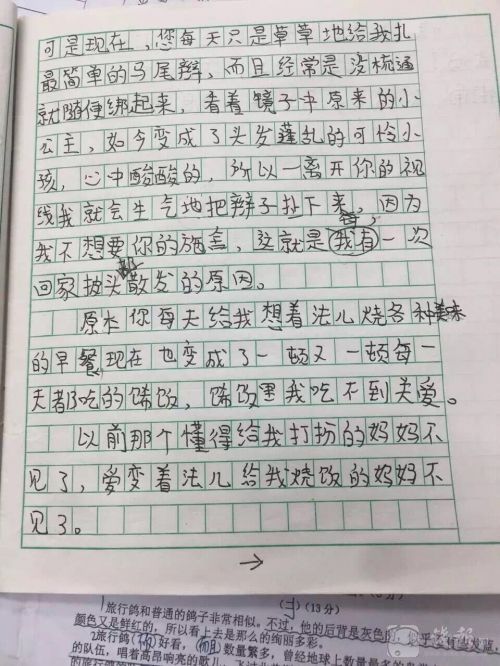 可是现在，您每天只是草草地给我扎
最简单的马尾辫，而且经常是没梳通
就随便绑起来，看着镜子中原来的小
公主，如今变成了头发蓬乱的可怜小
孩，心中酸酸的，所以一离开你的视
线我就会生气地把辫子扯下来，因为
我不想要你的施舍，这就是我有一次
回家披头散发的原因。
原本你每天给我想着法儿烧各种美味
的早餐现在也变成了一顿又一顿每一
天都吃的饭，饭里我吃不到关爱。
以前那个懂得给我打扮的妈妈不
见了，爱变着法儿给我烧饭的妈妈不
见了。
→
(二)(13分)
1旅行鸽和普通的鸽子非常相似。不过，他的后背是灰色的，
颜色又是鲜红的，所以看上去是那么的绚丽多彩。
2旅行鸽好看，数量繁多，曾经地球上数量最多的
的队伍，唱着高昂响亮的歌儿，